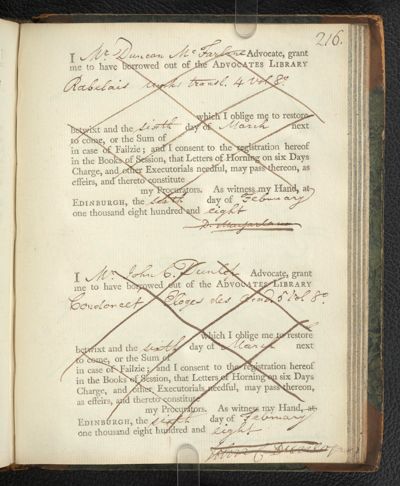 216.
I Mr Duncan McFarlane Advocate, grant
me to have borrowed out of the ADVOCATES LIBRARY
Rabelais works transl. 4 Vol 8o
which I oblige me to restore
betwixt and the sixth day of March next
to come, or the Sum of
in case of Failzie; and I consent to the registration hereof
in the Books of Session, that Letters of Horning on six Days
Charge, and other Executorials needful, may pass thereon, as
effeirs, and thereto constitute
my Procurators. As witness my Hand, at
EDINBURGH, the sixth day of February
one thousand eight hundred and eight
D. Macfarlane
I Mr John C. Dunlop Advocate, grant
me to have borrowed out of the ADVOCATES LIBRARY
Condorcet Eloges des 5 Vol 8o
which I oblige me to restore
betwixt and the sixth day of March next
to come, or the Sum of
in case of Failzie; and I consent to the registration hereof
in the Books of Session, that Letters of Horning on six Days
Charge, and other Executorials needful, may pass thereon,
as effeirs, and thereto constitute
my Procurators. As witness my Hand, at
EDINBURGH, the sixth day of February
one thousand eight hundred and eight
John C